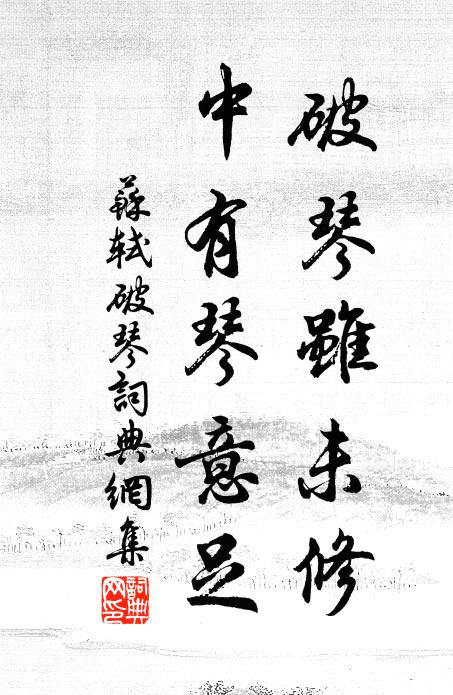 破琴雖未修
中有琴意足
蘇軾破琴詞典網集
詞典网印